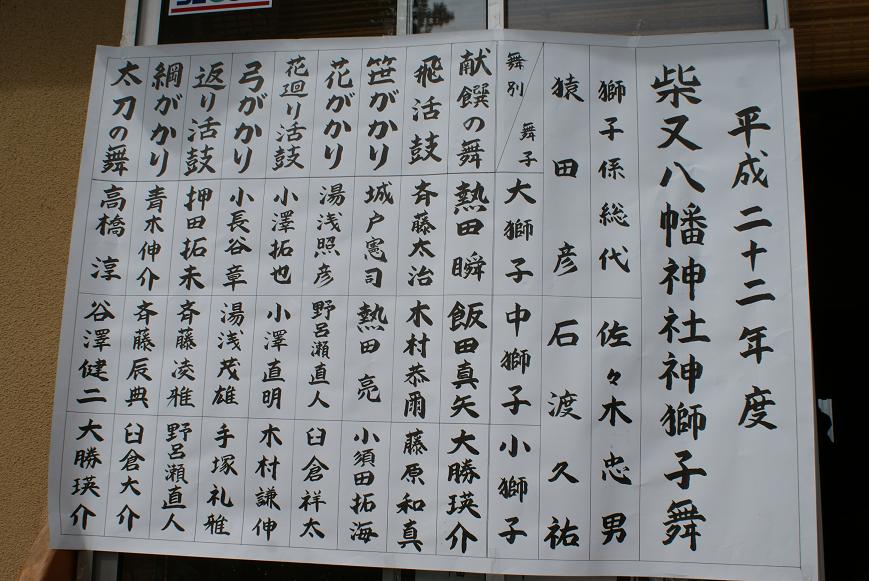 平成二十二年度
柴又八幡神社神獅子舞
獅子係総代 佐々木忠男
猿田彦 石渡久祐
舞別 舞子 大獅子 中獅子 小獅子
献饌の舞 熱田瞬 飯田真矢 大勝瑛介
飛活鼓 斉藤太治 木村恭爾 藤原和真
笹がかり 城戸憲司 熱田亮 小須田拓海
花がかり 湯浅照彦 野呂瀬直人 臼倉祥太
花廻り活鼓 小澤拓也 小澤直明 木村謙伸
弓がかり 小長谷章 湯浅茂雄 手塚礼雅
返り活鼓 押田拓未 斉藤凌雅 野呂瀬直人
綱がかり 青木伸介 斉藤辰典 臼倉大介
太刀の舞 高橋淳 谷澤健二 大勝瑛介